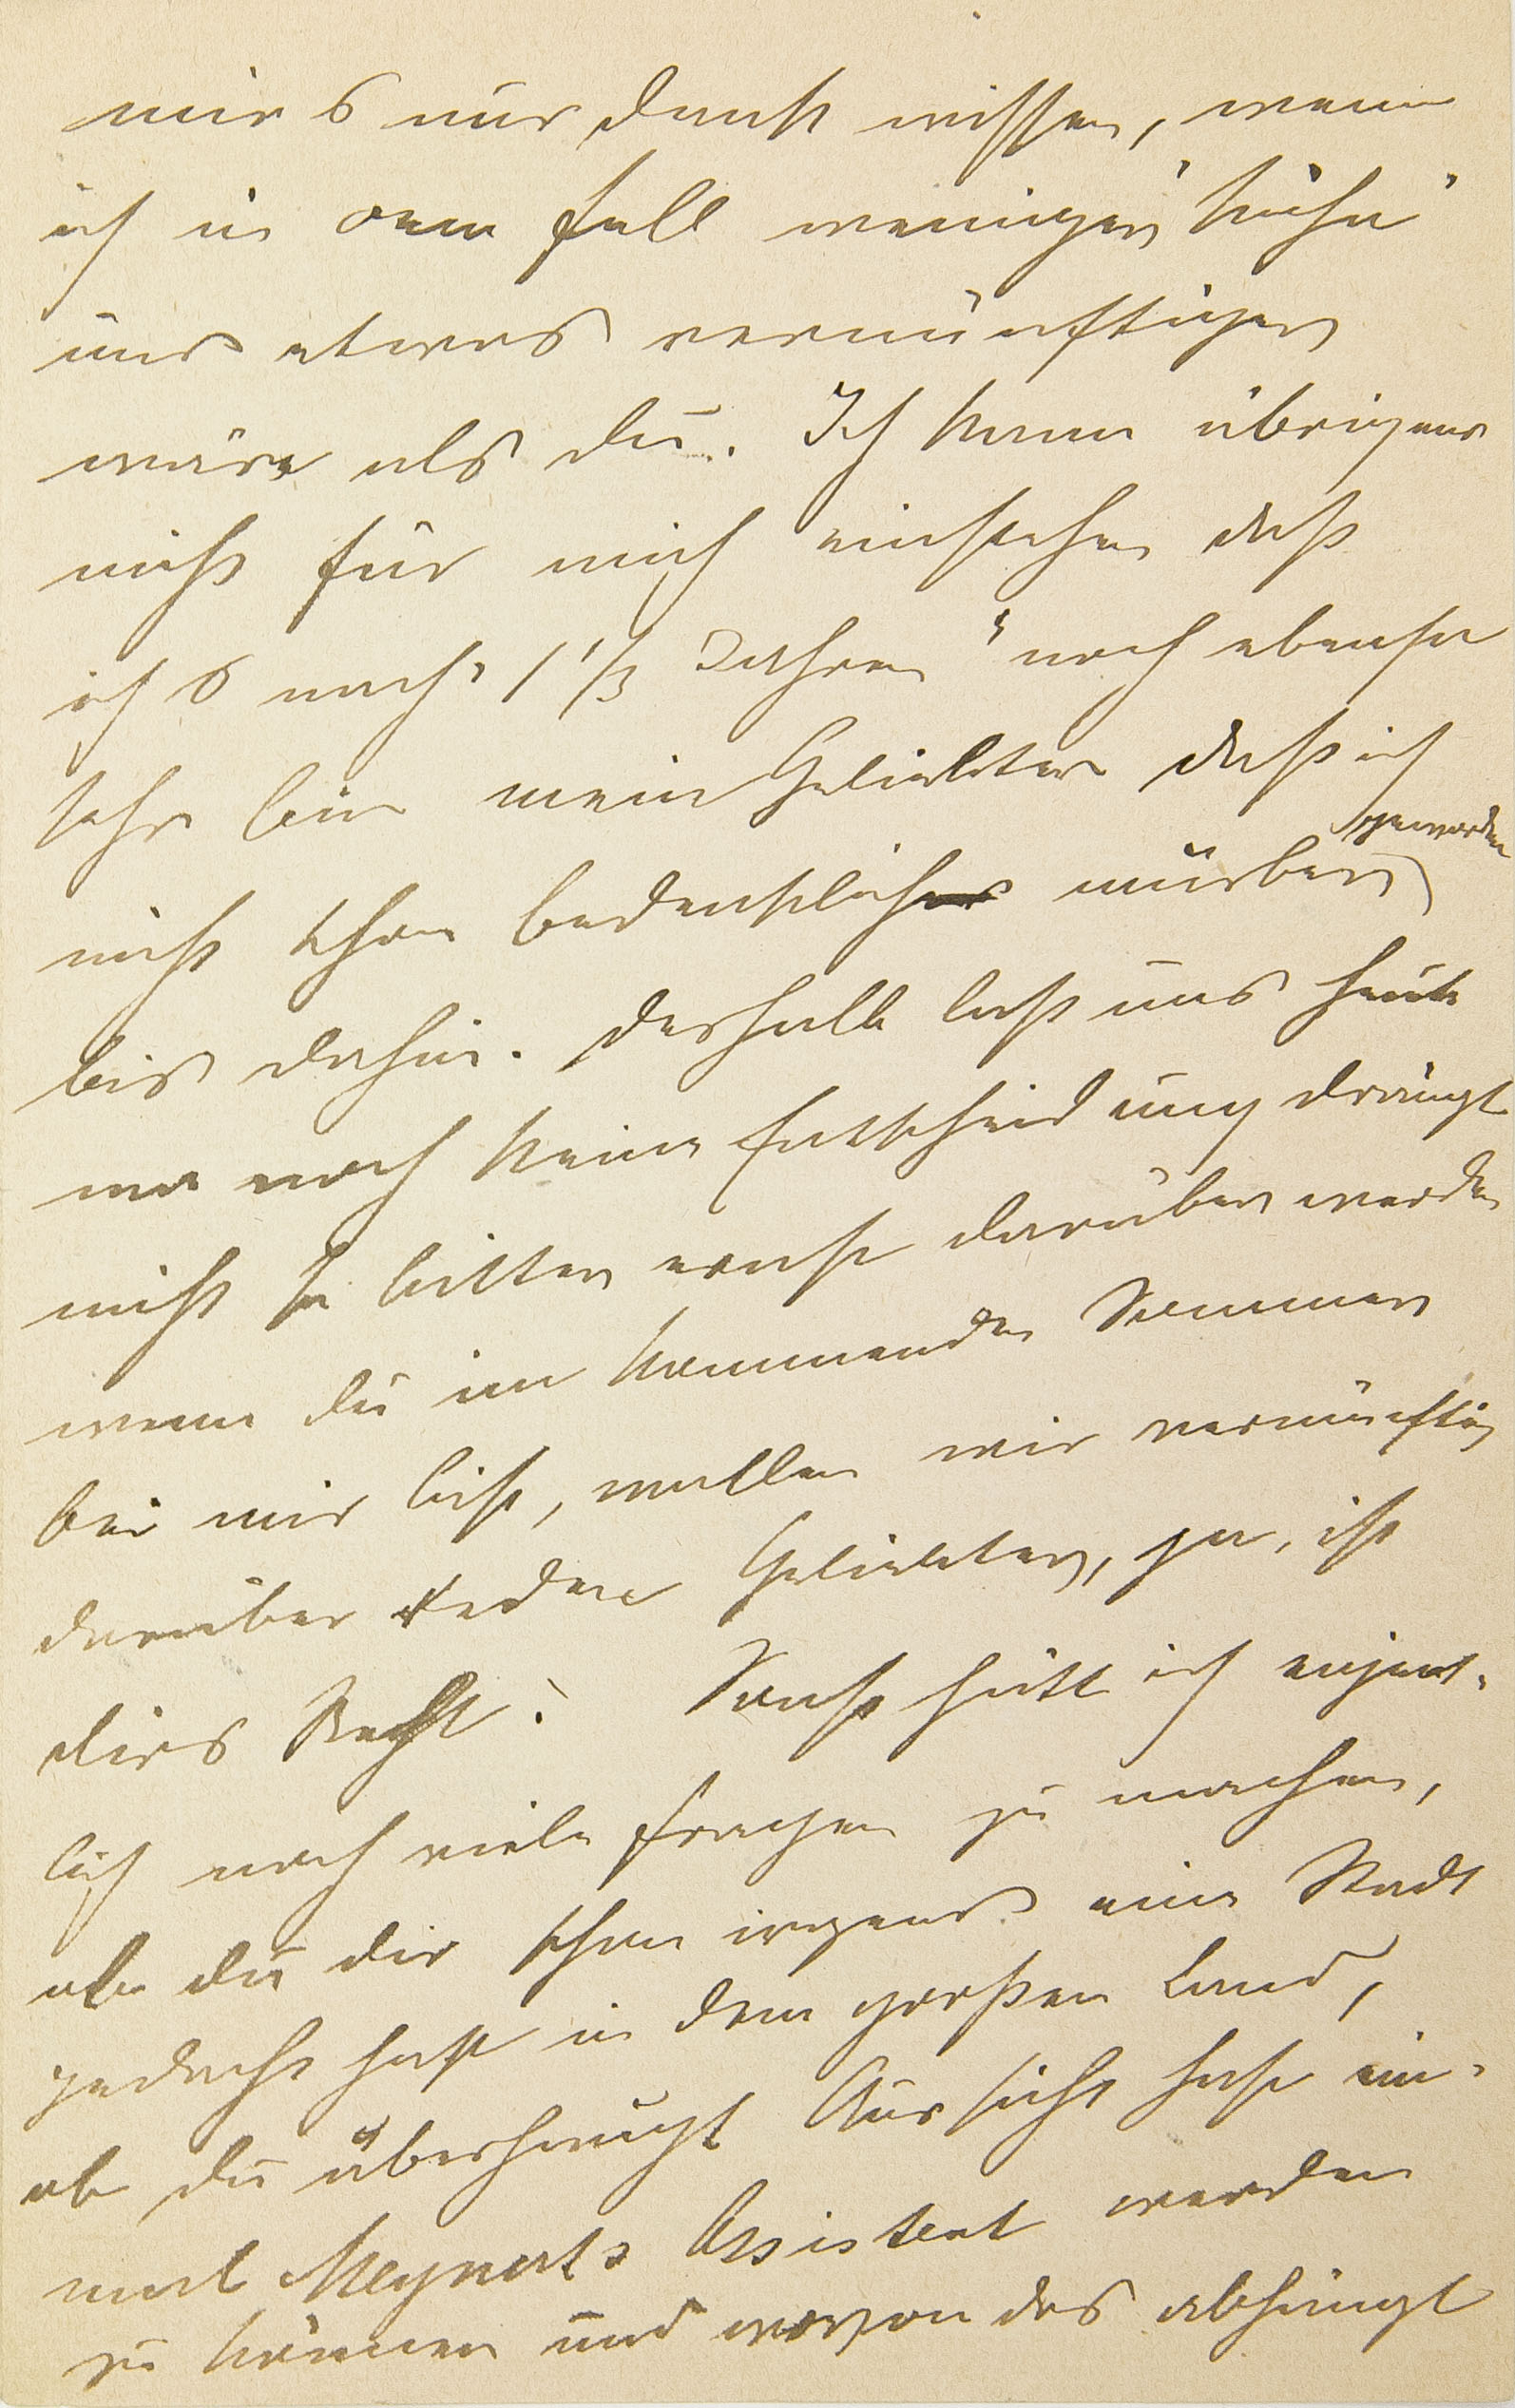 mirs nur dank wissen, wenn
ich in dem Fall weniger "kühn"
und etwas vernünftiger
wäre als du. Ich kann übrigens
nicht für mich einstehen daß
ichs nach "1 1/3 Jahren" noch ebenso
sehr bin mein Geliebter daß ich
nicht schon bedenklich mürber geworden
bis dahin. Deshalb laß uns heute
wo noch keine Entscheidung drängt
nicht so bitter ernst darüber werden
wenn du im kommenden Sommer
bei mir bist, wollen wir vernünftig
darüber reden Geliebter, ja, ist
dirs Recht? Sonst hätt ich eigent-
lich noch viele Fragen zu machen,
ob du dir schon irgend eine Stadt
gedacht hast in dem großen Land,
ob du überhaupt Aussicht hast ein-
mal Meynerts Assistent werden
zu können und wovon das abhängt